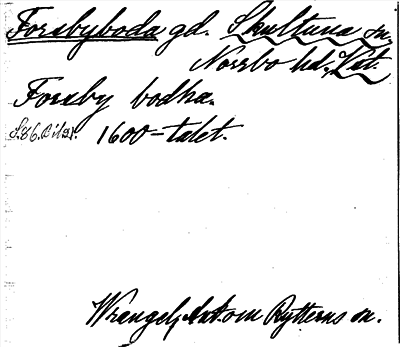 Forsbyboda gd. Skultuna sn.
Norrbo hd., Vstm.
Forsby bodha.
S. 86. Bil. 21. 1600-talet.
Wrangel, Ant. om Rytterns sn.